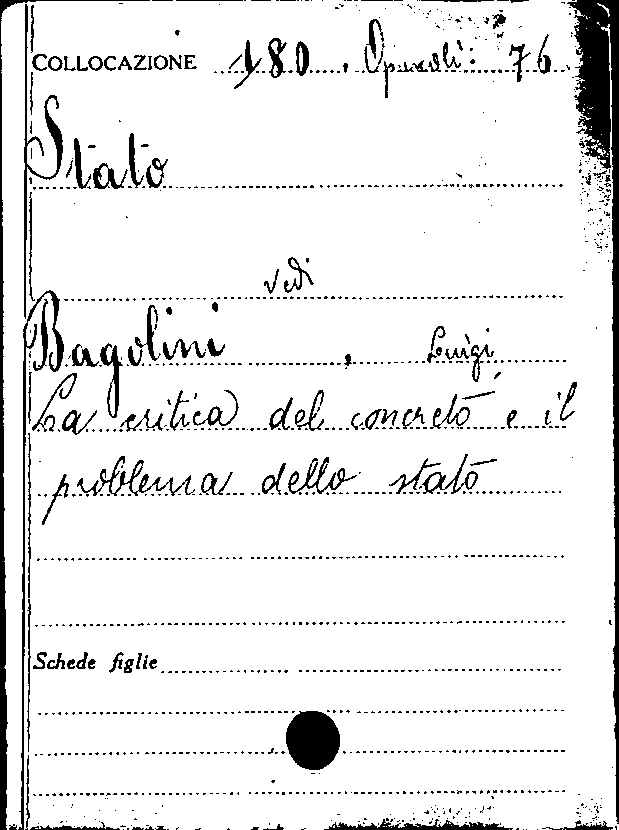 COLLOCAZIONE 180. Opuscoli: 76
Stato
vedi
Bagolini, Luigi
La critica del concreto e il
problema dello stato
Schede figlie